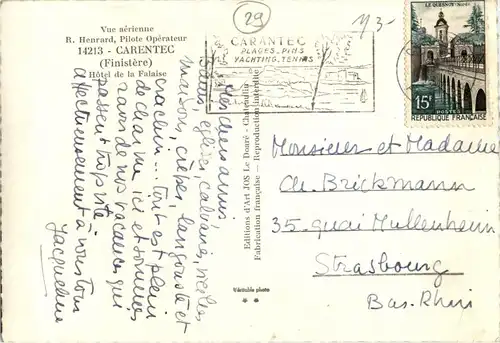 Vue aérienne
R. Henrard, Pilote Opérateur
14213 - CARENTEC
(Finistère)
Hôtel de la Falaise
29
CARANTEC
PLAGES_PINS
YACHTING_TENNIS
Y3-
LE QUESNOY (Nord)
15F
POSTES
REPUBLIQUE FRANÇAISE
Mes chers amis
églises, calvaires, vieilles
maisons, crêpes, langouste et
crachin... tout est plein
de charme ici et sommes
ravis de nos vacances qui
passent trop vite
affectueusement à vous tous
Jacqueline
Editions d'Art JOS Le Doaré - Chateaulin
Fabrication française - Reproduction interdite
Véritable photo
Monsieur et Madame
Ch. Brickmann
35 quai Mullenheim
Strasbourg
Bas-Rhin